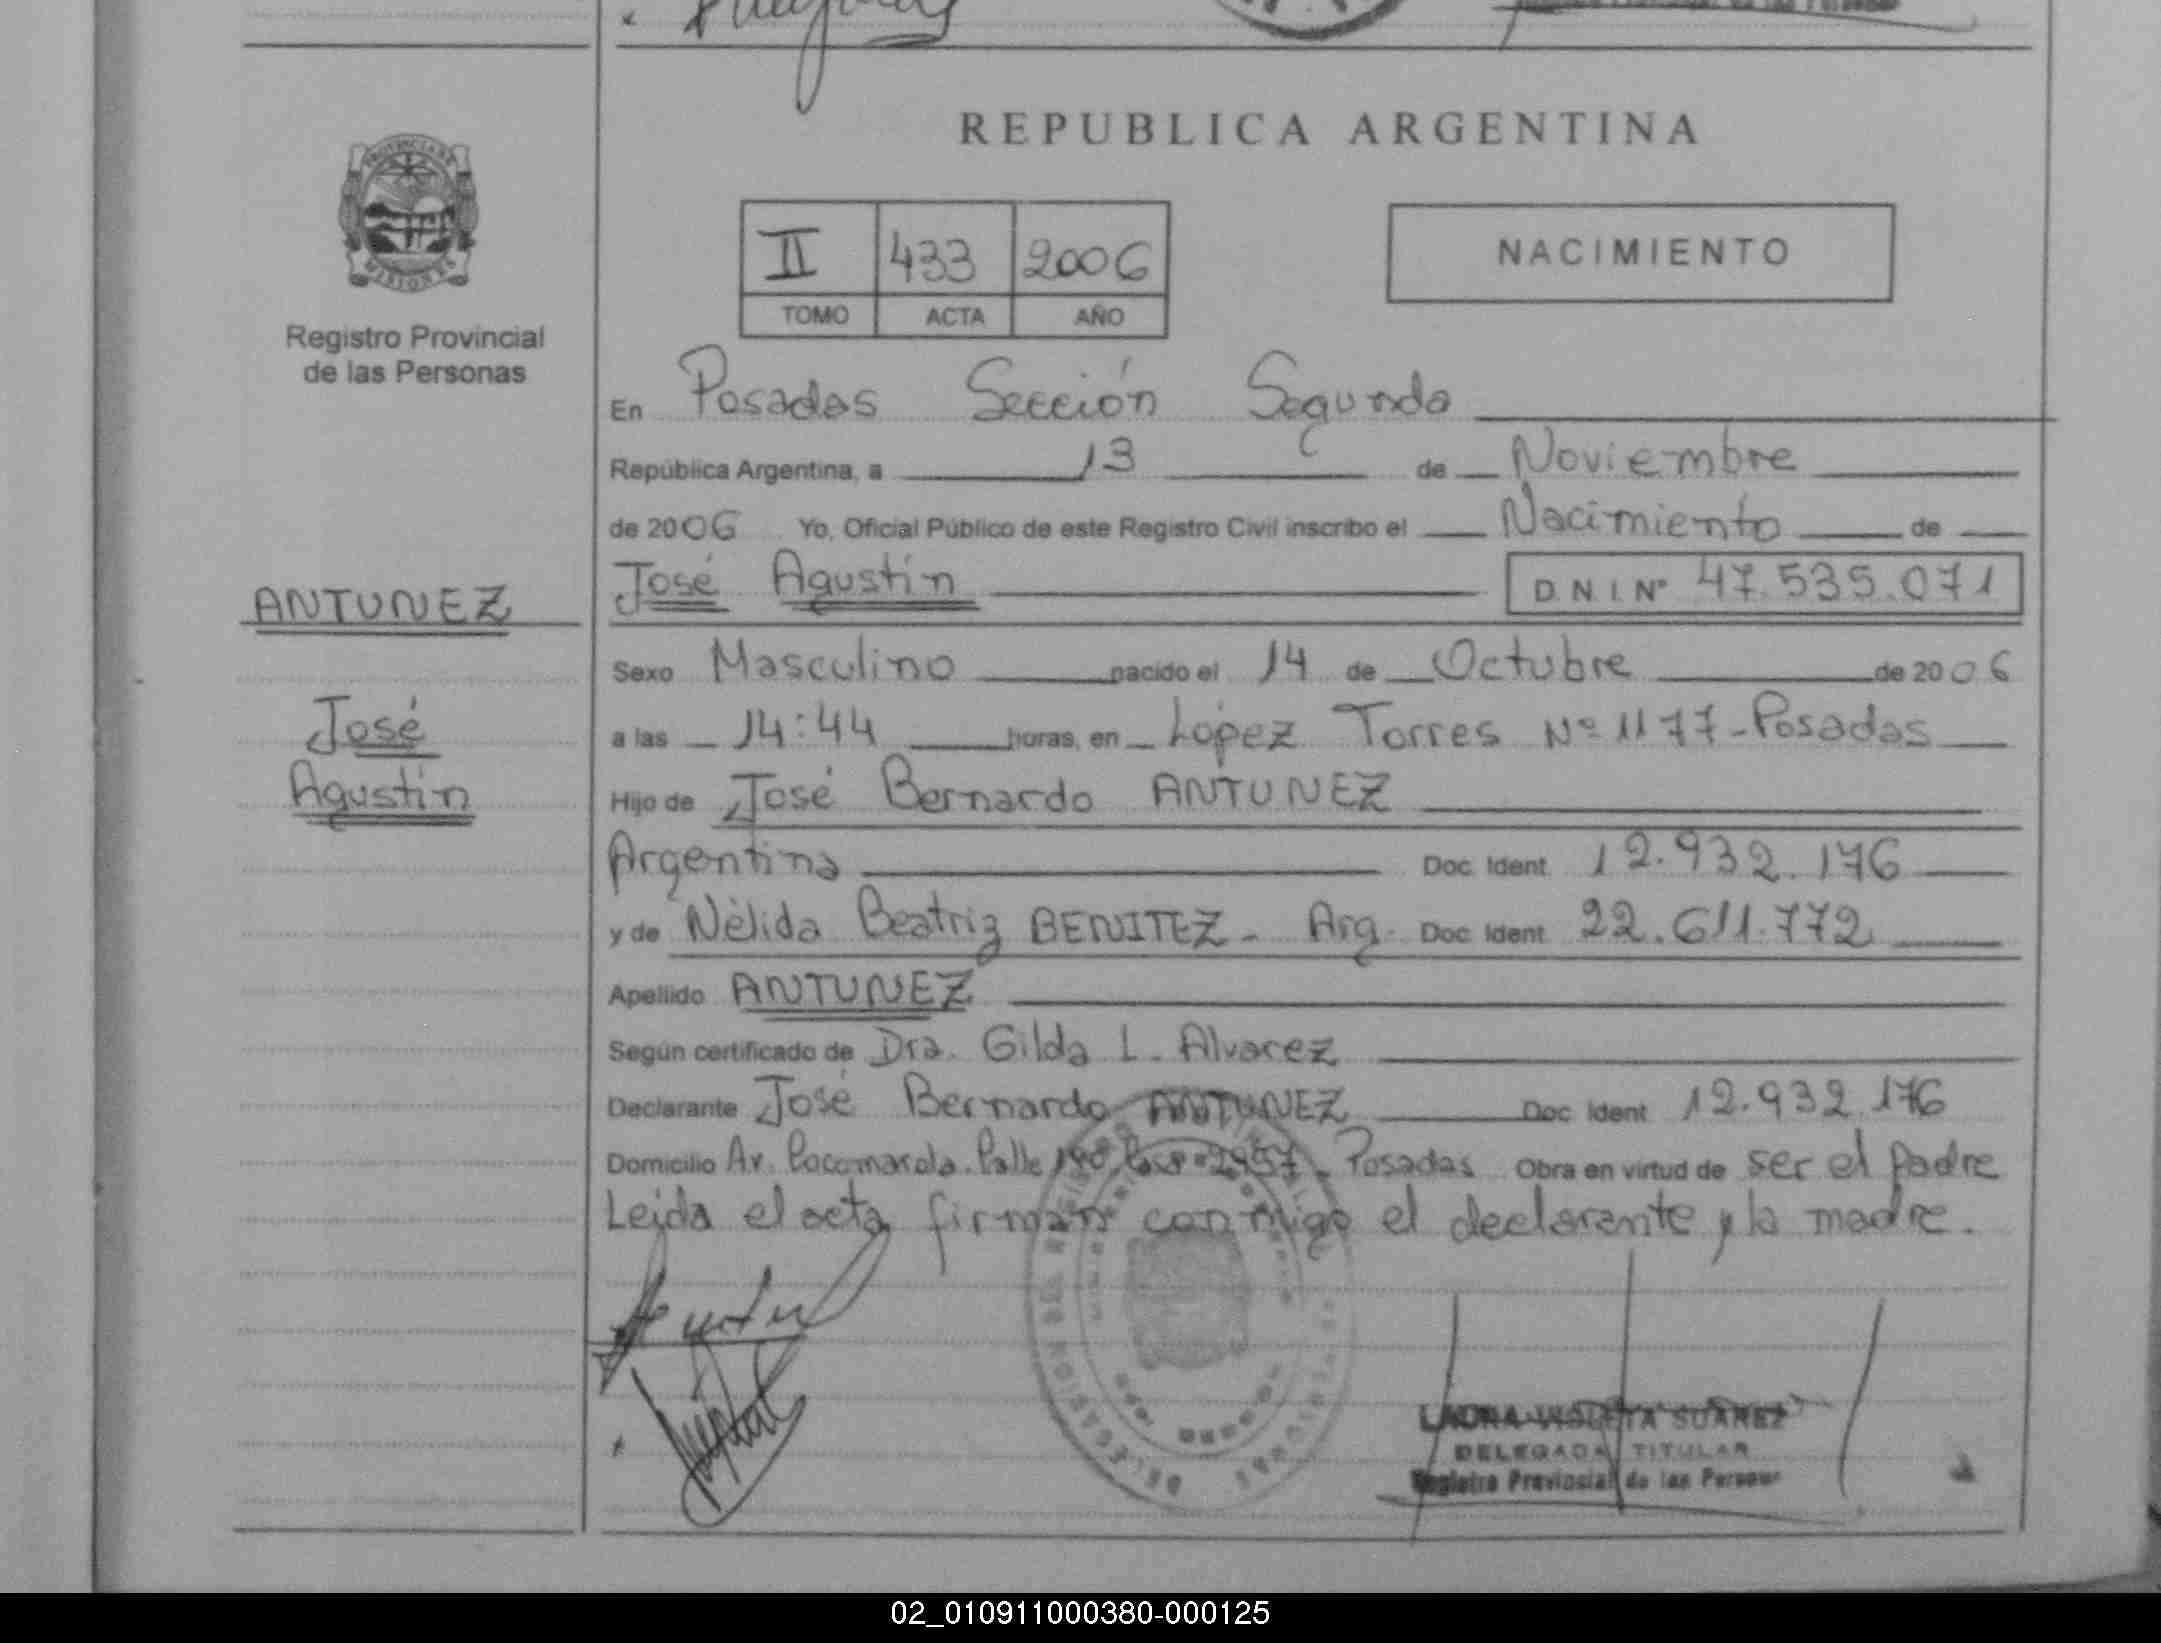 REPUBLICA ARGENTINA
PROVINCIA DE
MISIONES
Registro Provincial
de las Personas
II 433 2006
TOMO ACTA AÑO
NACIMIENTO
En Posadas Sección Segunda
República Argentina, a 13 de Noviembre
de 2006 Yo, Oficial Público de este Registro Civil inscribo el Nacimiento de
ANTUNEZ
José Agustín D.N.I.Nº 47.535.071
Sexo Masculino nacido el 14 de Octubre de 2006
José
a las 14:44 horas, en López Torres Nº 1177-Posadas
Agustín
Hijo de José Bernardo ANTUNEZ
Argentina Doc. Ident. 12.932.176
y de Nélida Beatriz BENITEZ - Arg. Doc. Ident. 22.611.772
Apellido ANTUNEZ
Según certificado de Dra. Gilda L. Alvarez
Declarante José Bernardo ANTUNEZ Doc. Ident. 12.932.176
Domicilio Av. Posadas Obra en virtud de ser el padre
Leída el acta firman conmigo el declarante y la madre.
LAURA VIOLETA SUAREZ
DELEGADA TITULAR
Registro Provincial de las Personas
02_010911000380-000125